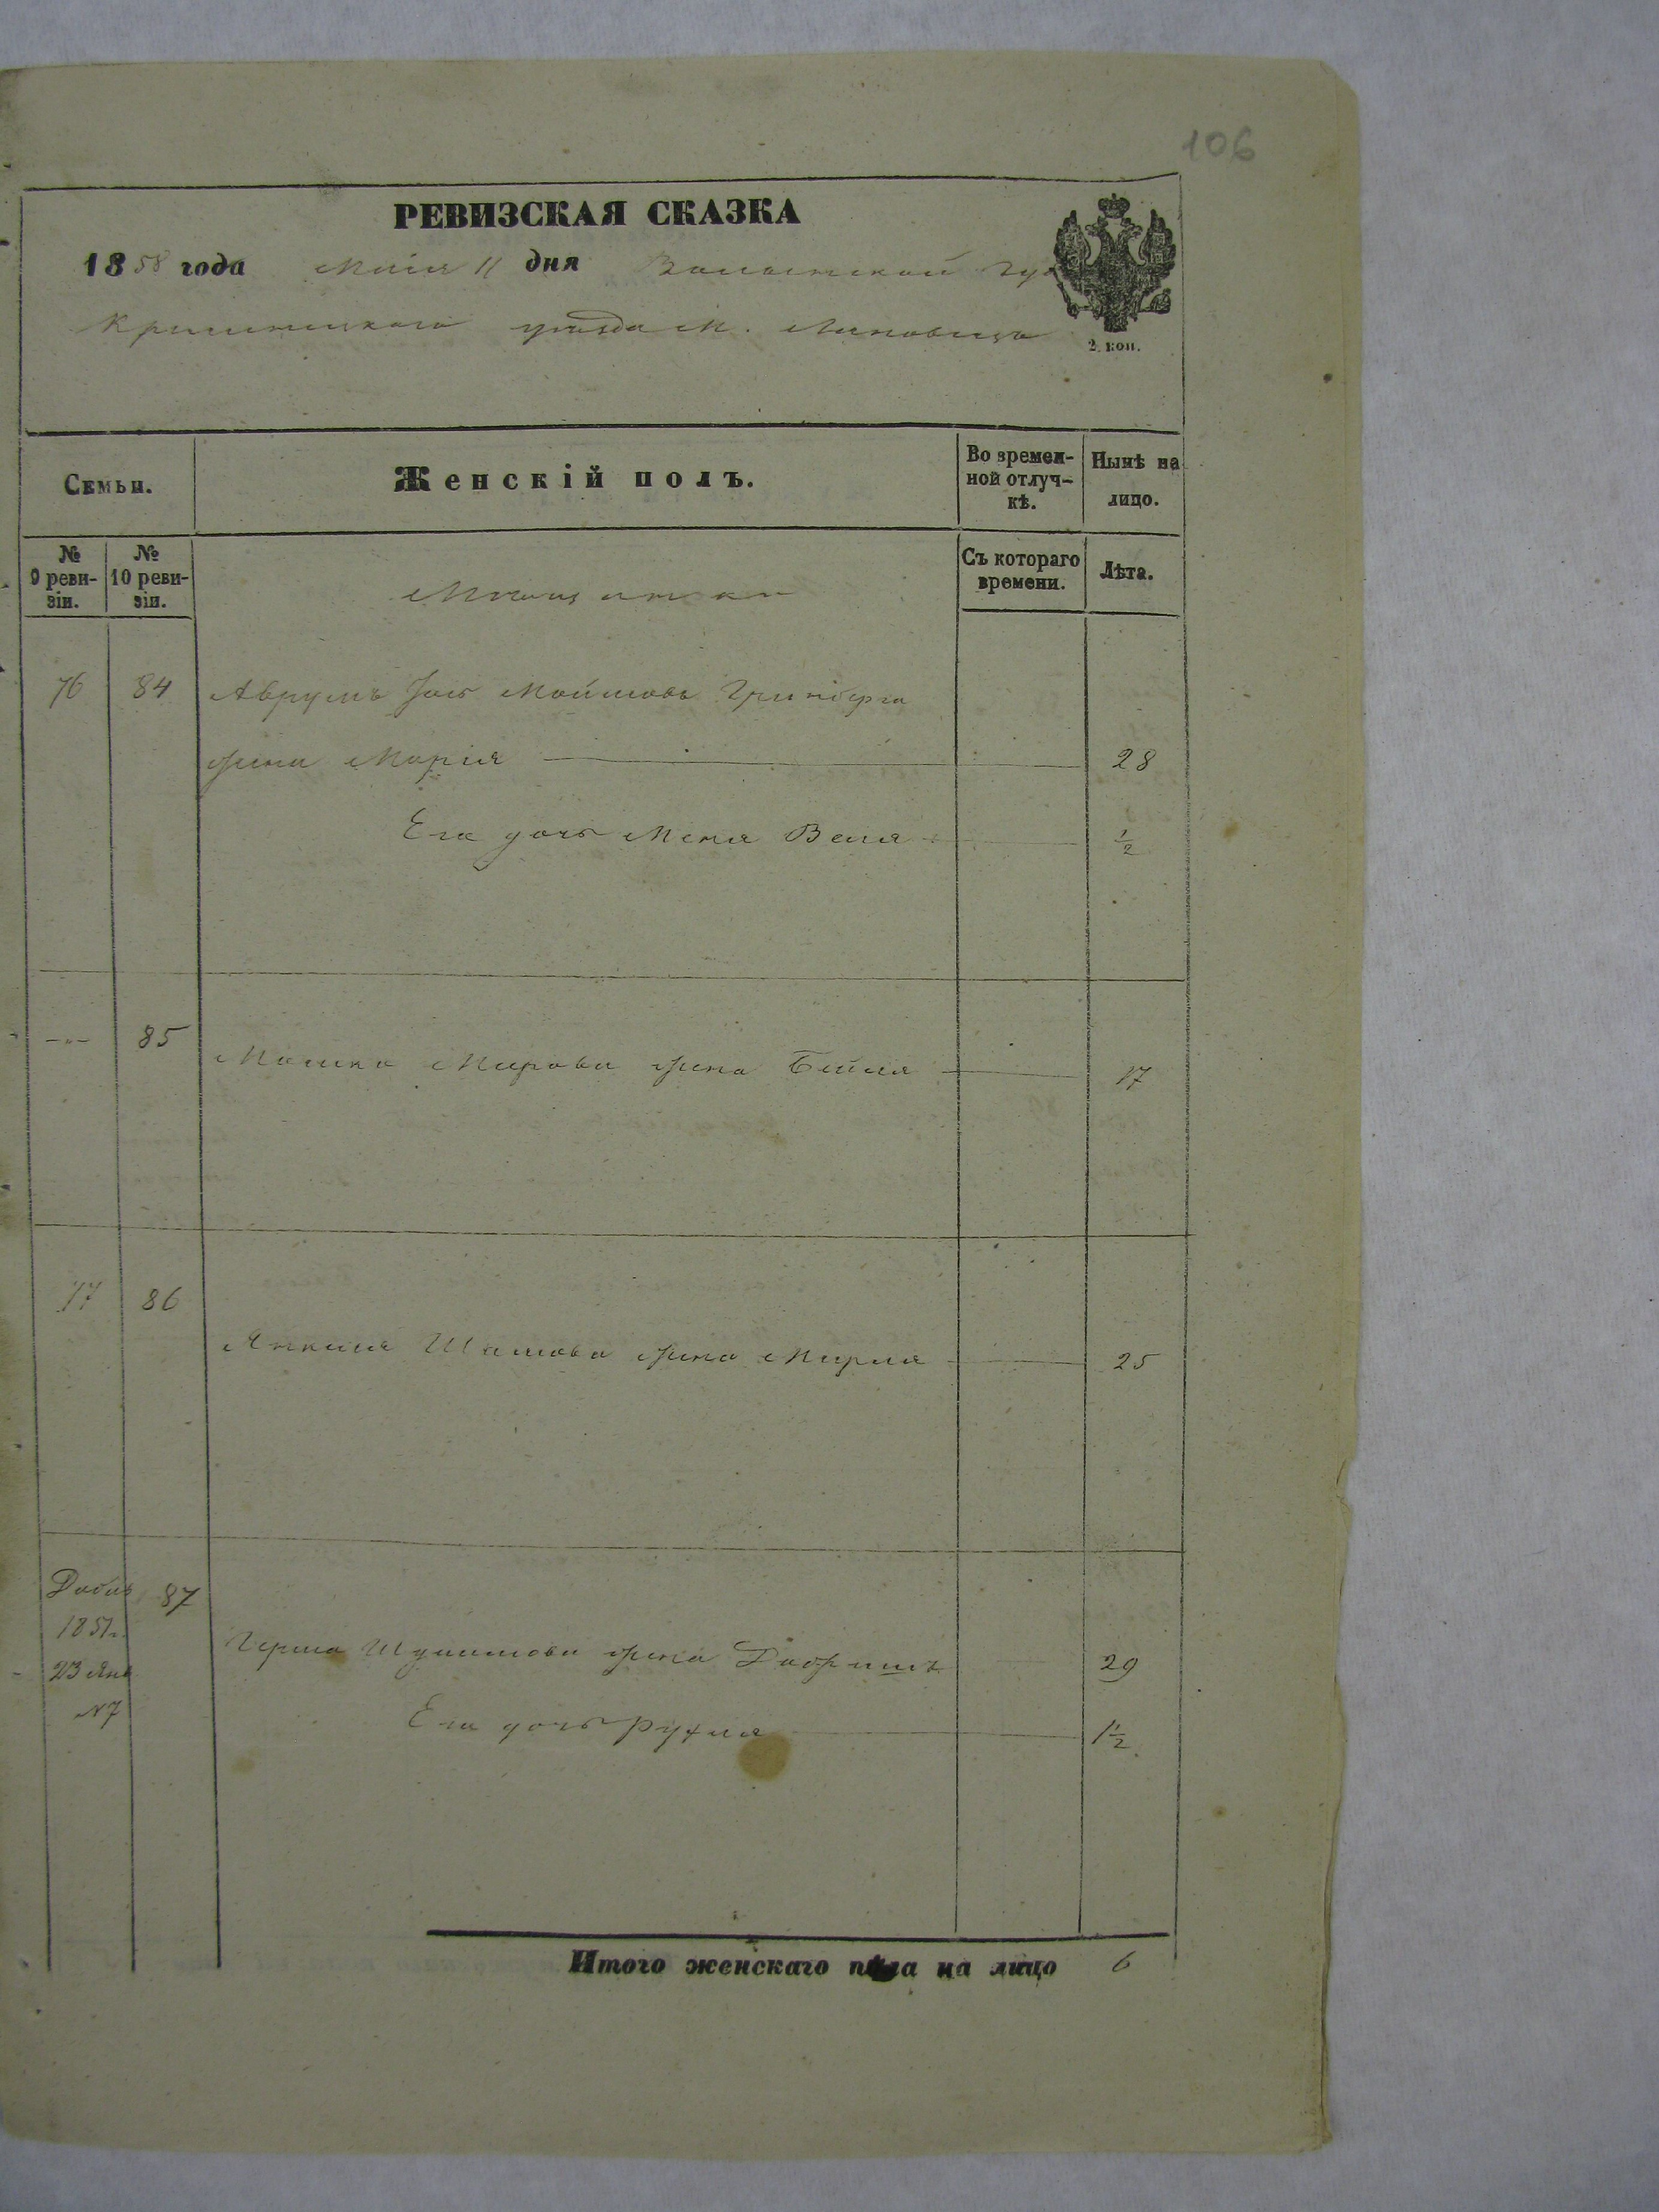 106
РЕВИЗСКАЯ СКАЗКА
1858 года Маія 11 дня Волынской гу
Кременецкаго уезда М.
2 коп.
Семьи.
Женскій полъ.
Во времен-
ной отлуч-
кѣ.
Нынѣ на
лицо.
№
9 реви-
зіи.
№
10 реви-
зіи.
Съ котораго
времени.
Лѣта.
Мещанки
76 84 Аврумъ Іось Мошкова Гринберга
жена Марія 28
Его дочь Меня Веля ½
-"- 85
Мошка Мирова жена Бейля 17
77 86
Янкеля Шамова жена Мирля 25
Добав 87
1851г.
23 Янв
№7
Герша Шулимова жена 29
Его дочь Рухля 1½
Итого женскаго пола на лицо 6